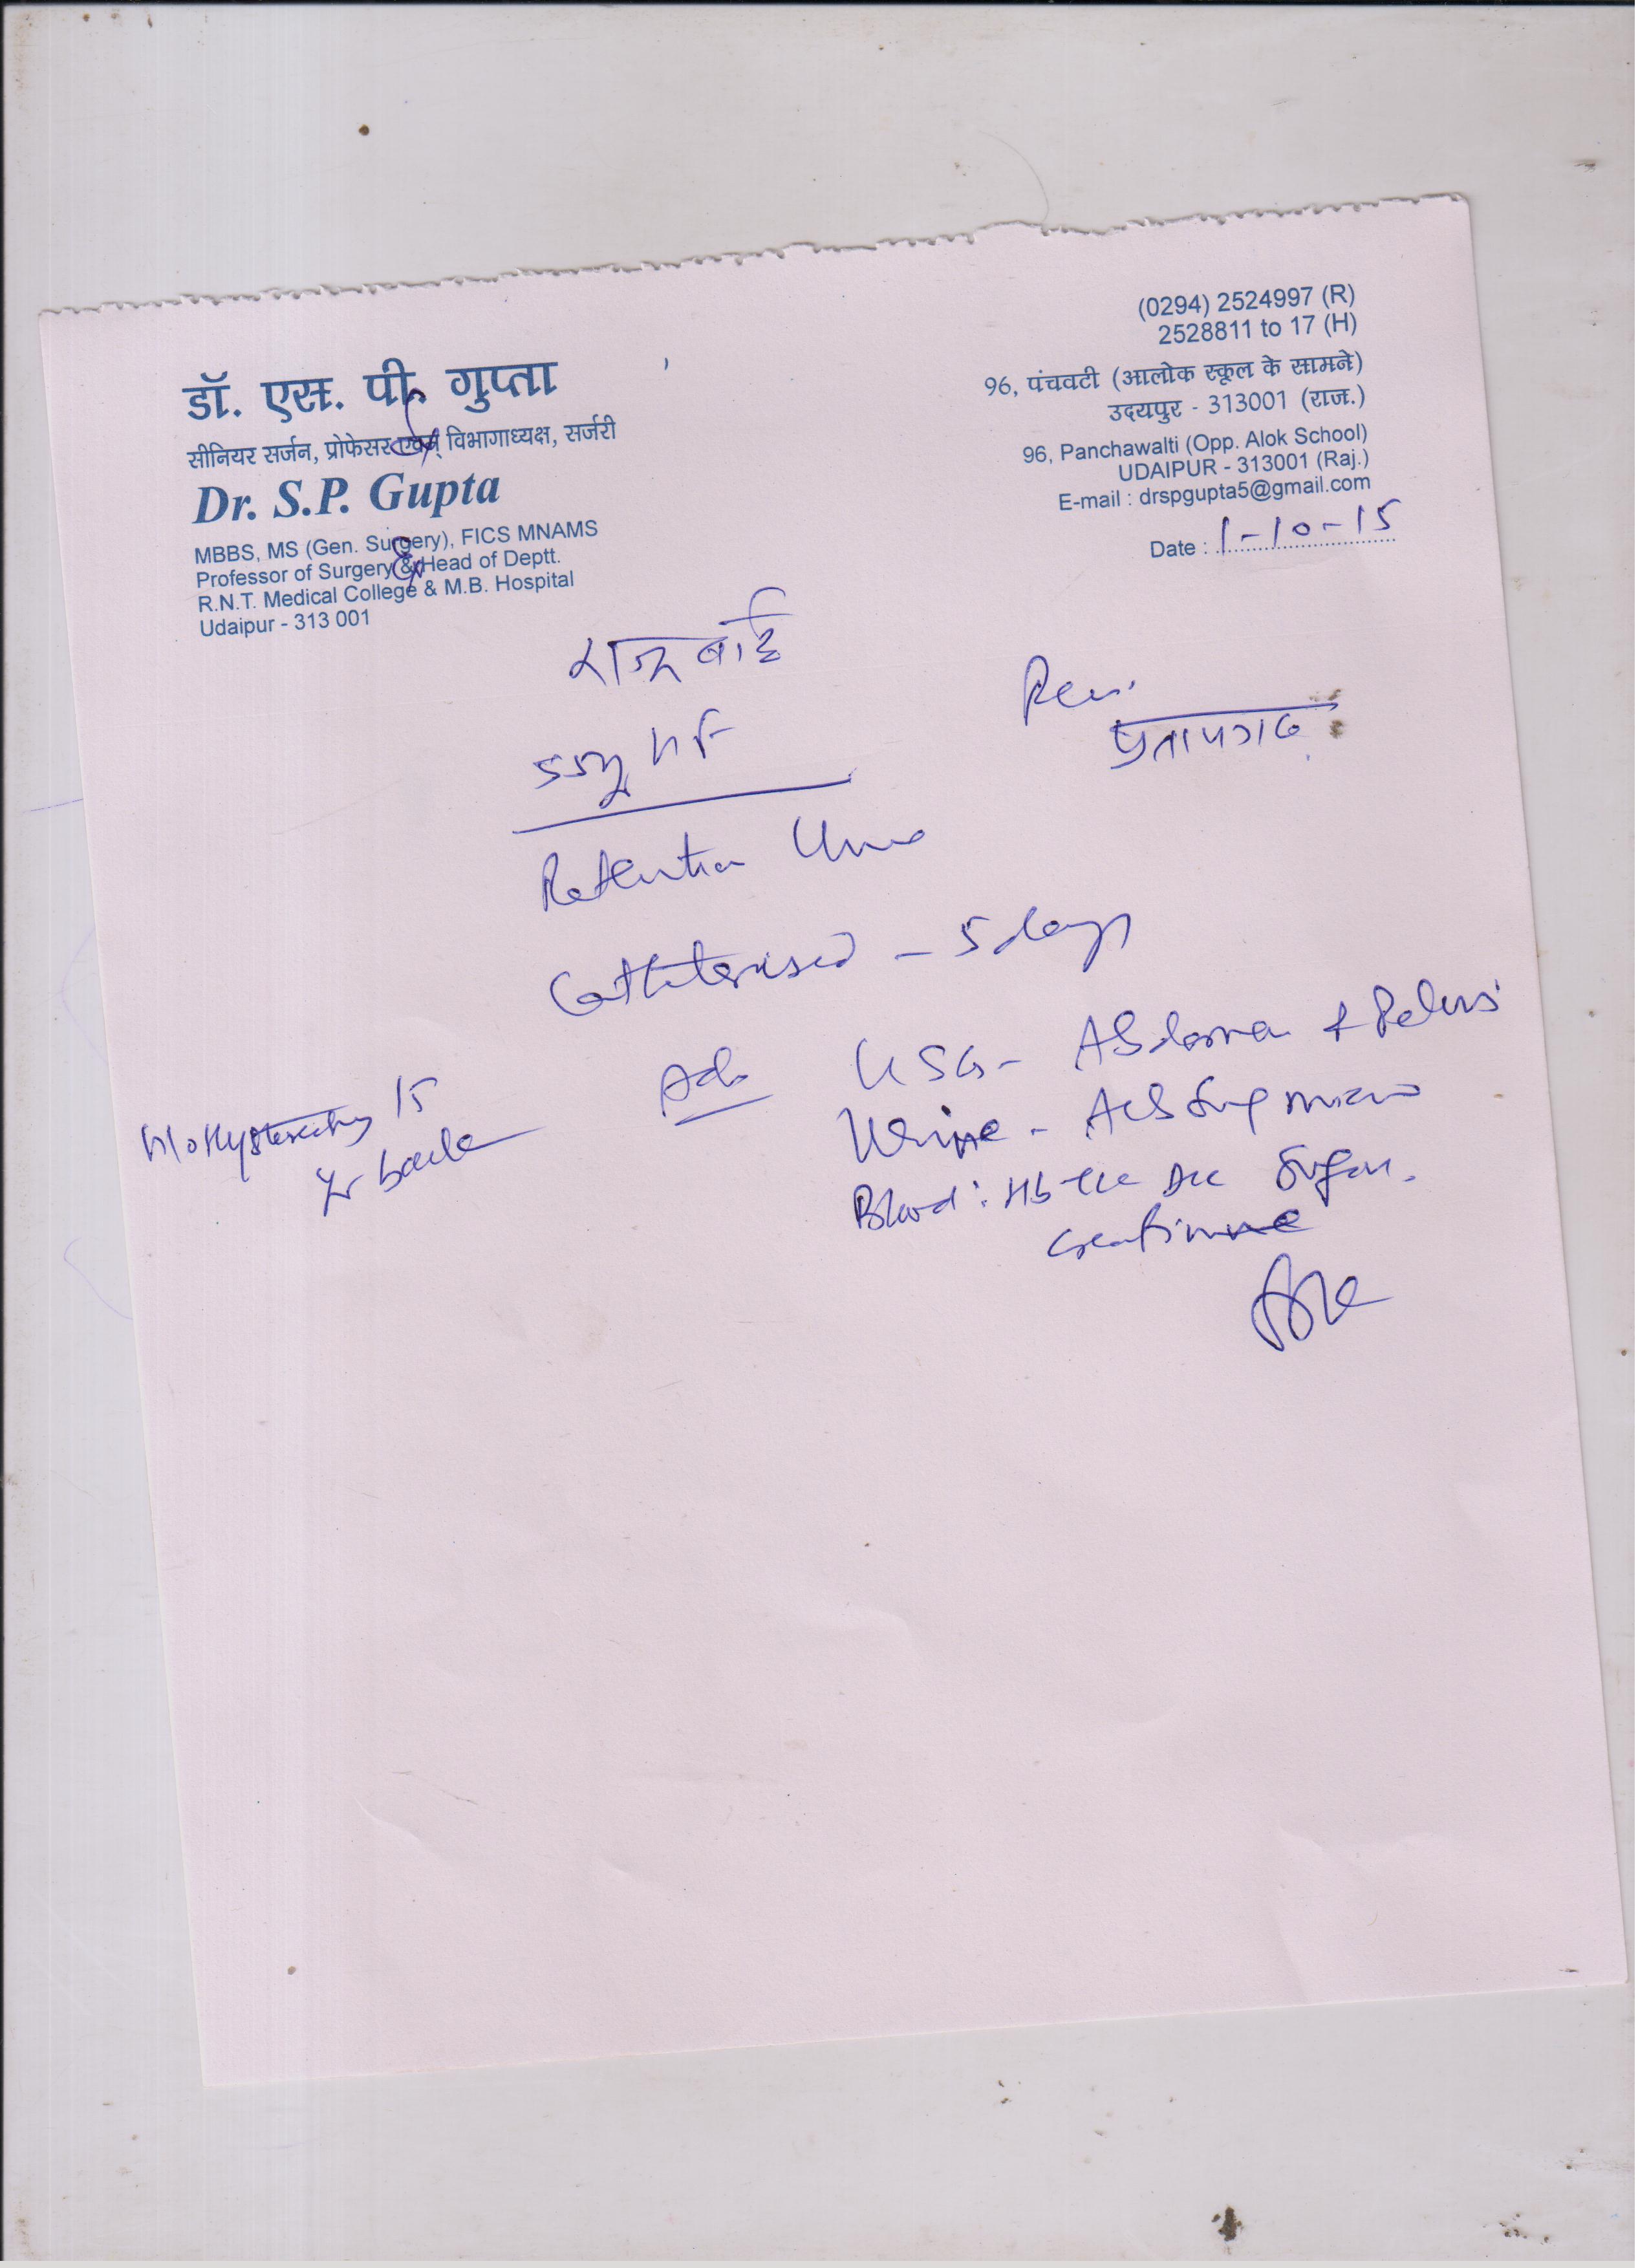 (0294) 2524997 (R)
2528811 to 17 (H)
96, पंचवटी (आलोक स्कूल के सामने)
उदयपुर - 313001 (राज.)
96, Panchawalti (Opp. Alok School)
UDAIPUR - 313001 (Raj.)
E-mail : drspgupta5@gmail.com
Date : 1-10-15
डॉ. एस. पी. गुप्ता
सीनियर सर्जन, प्रोफेसर एवम् विभागाध्यक्ष, सर्जरी
Dr. S.P. Gupta
MBBS, MS (Gen. Surgery), FICS MNAMS
Professor of Surgery & Head of Deptt.
R.N.T. Medical College & M.B. Hospital
Udaipur - 313 001
राजूबाई
प्रतापगढ
Retention Urine
Catheterised - 5 days
USG - Abdomen & Pelvis
Urine - Alb Sug micro
Blood: Hb TLC DLC Sugar.
Creatinine
H/o Hysterectomy 15
yr back